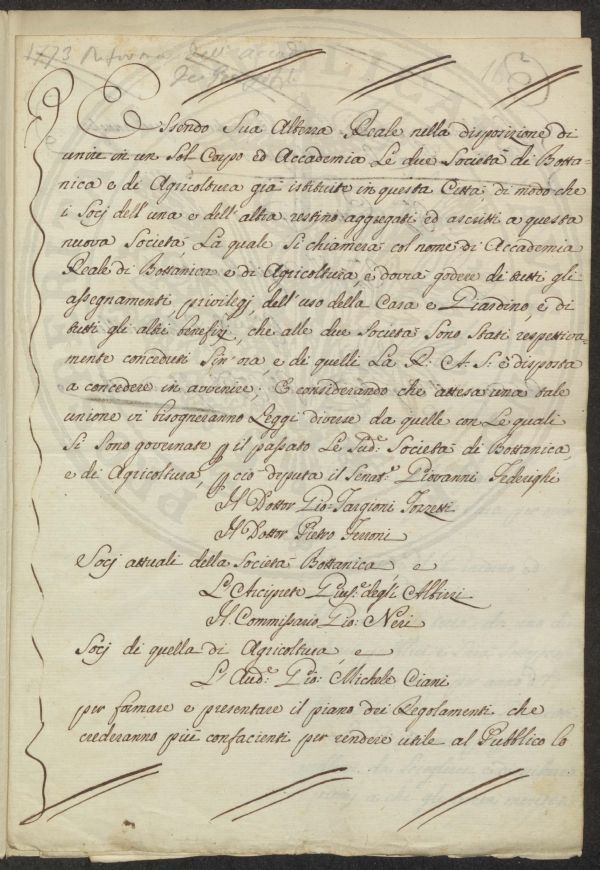 1773 Riforma dell'accad
dei Georgofili
Essendo Sua Altezza Reale nella disposizione di
unire in un Sol Corpo ed Accademia Le due Società di Botta-
nica e di Agricoltura già istituite in questa Città, di modo che
i Socj dell'una e dell'altra restino aggregati ed ascritti a questa
nuova Società La quale Si chiamerà col nome di Accademia
Reale di Bottanica e di Agricoltura, e dovrà godere di tutti gli
assegnamenti privilegj, dell'uso della Casa e Giardino, e di
tutti gli altri benefizj, che alle due Società Sono Stati respettiva-
mente conceduti Sin'ora e di quelli La R: A: S: è disposta
a concedere in avvenire; E considerando che attesa una tale
unione vi bisogneranno Leggi diverse da quelle con Le quali
Si Sono governate p il passato Le Sud.e Società di Bottanica,
e di Agricoltura, p ciò deputa il Senat.e Giovanni Federighi
Il Dottor Gio: Targioni Tozzetti
Il Dottor Pietro Ferroni
Socj attuali della Società Bottanica e
L'Arciprete Gius.e degli Albizzi
Il Commissario Gio: Neri
Socj di quella di Agricoltura, e
L'Aud.e Gio: Michele Ciani
per formare e presentare il piano dei Regolamenti che
crederanno più confacienti per rendere utile al Pubblico lo